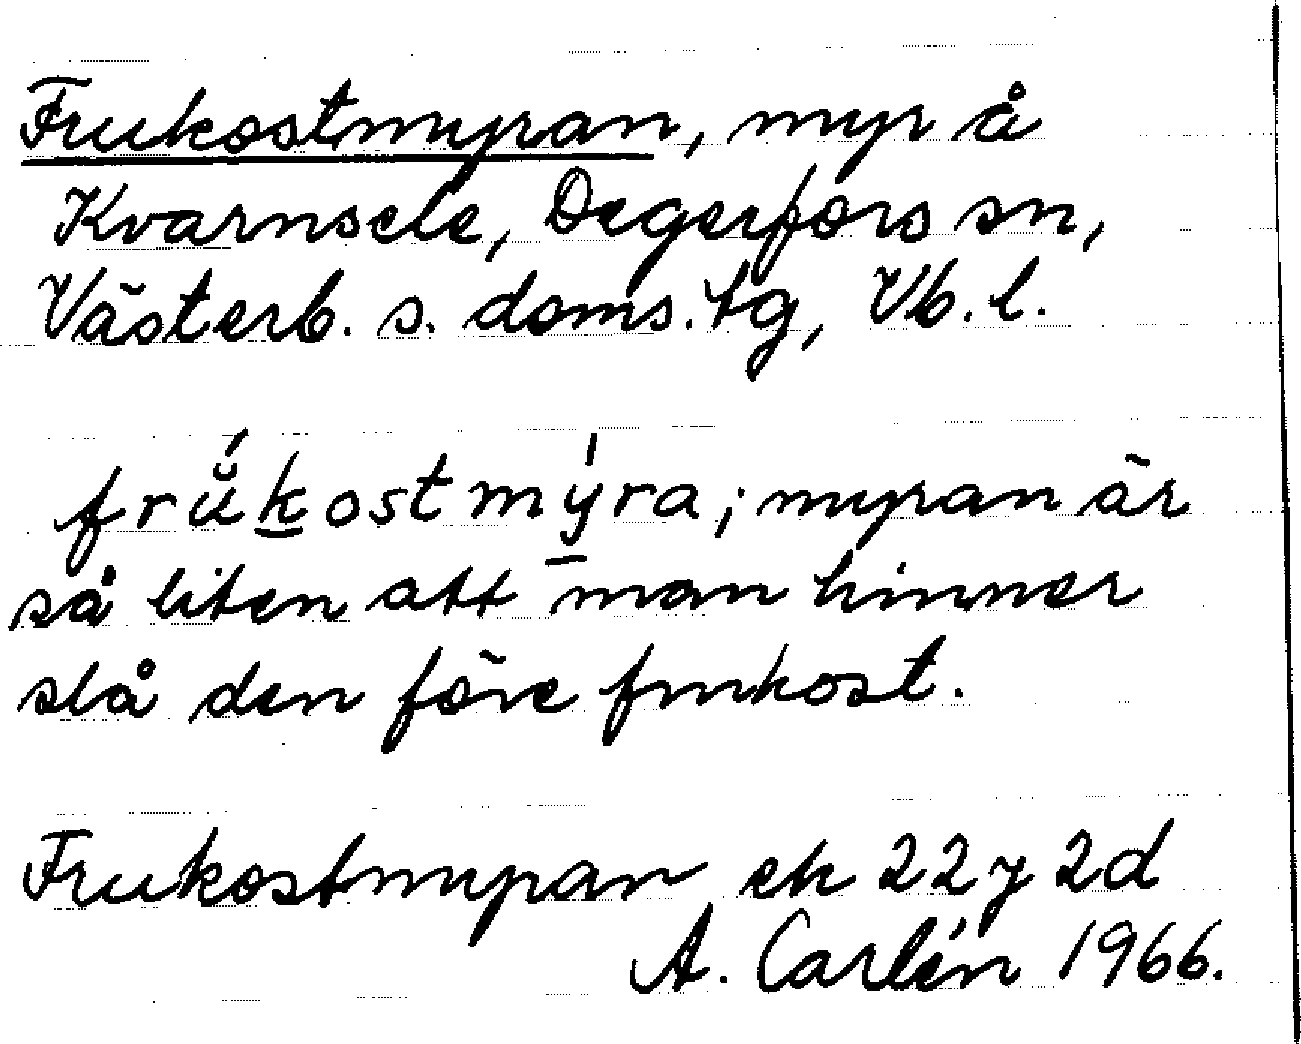 Frukostmyran, myr å
Kvarnsele, Degerfors sn,
Västerb. s. doms. tg, Vb. l.
frŭ́kostmýra; myran är
så liten att man hinner
slå den före frukost.
Frukostmyran ek 22 y 2d
A. Carlén 1966.